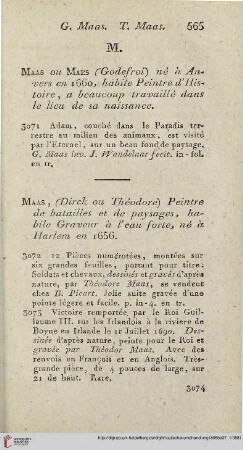 G. Maas. T. Maas. 665
M.
Maas ou Maes (Godefroi) né à An-
vers en 1660, habile Peintre d'His-
toire, a beaucoup travaillé dans
le lieu de sa naissance.
3071 Adam, couché dans le Paradis ter-
restre au milieu des animaux, est visité
par l'Eternel, sur un beau fond de paysage.
G. Maas inv. J. Wandelaar fecit. in-fol.
en tr.
Maas, (Dirck ou Théodore) Peintre
de batailles et de paysages, ha-
bile Graveur à l'eau forte, né à
Harlem en 1656.
3072 12 Pièces numérotées, montées sur
six grandes feuilles, portant pour titre:
Soldats et chevaux, dessinés et gravé d'après
nature, par Théodore Maas, se vendent
chez B. Picart. Jolie suite gravée d'une
pointe légere et facile. p. in-4. en tr.
3073 Victoire remportée, par le Roi Guil-
laume III. sur les Irlandois à la riviere de
Boyne en Irlande le 11 Juillet 1690. Des-
sinée d'après nature, peinte pour le Roi et
gravée par Théodor Maas. Avec des
renvois en François et en Anglois. Très-
grande pièce, de 4 pouces de large, sur
21 de haut. Rare.
3074